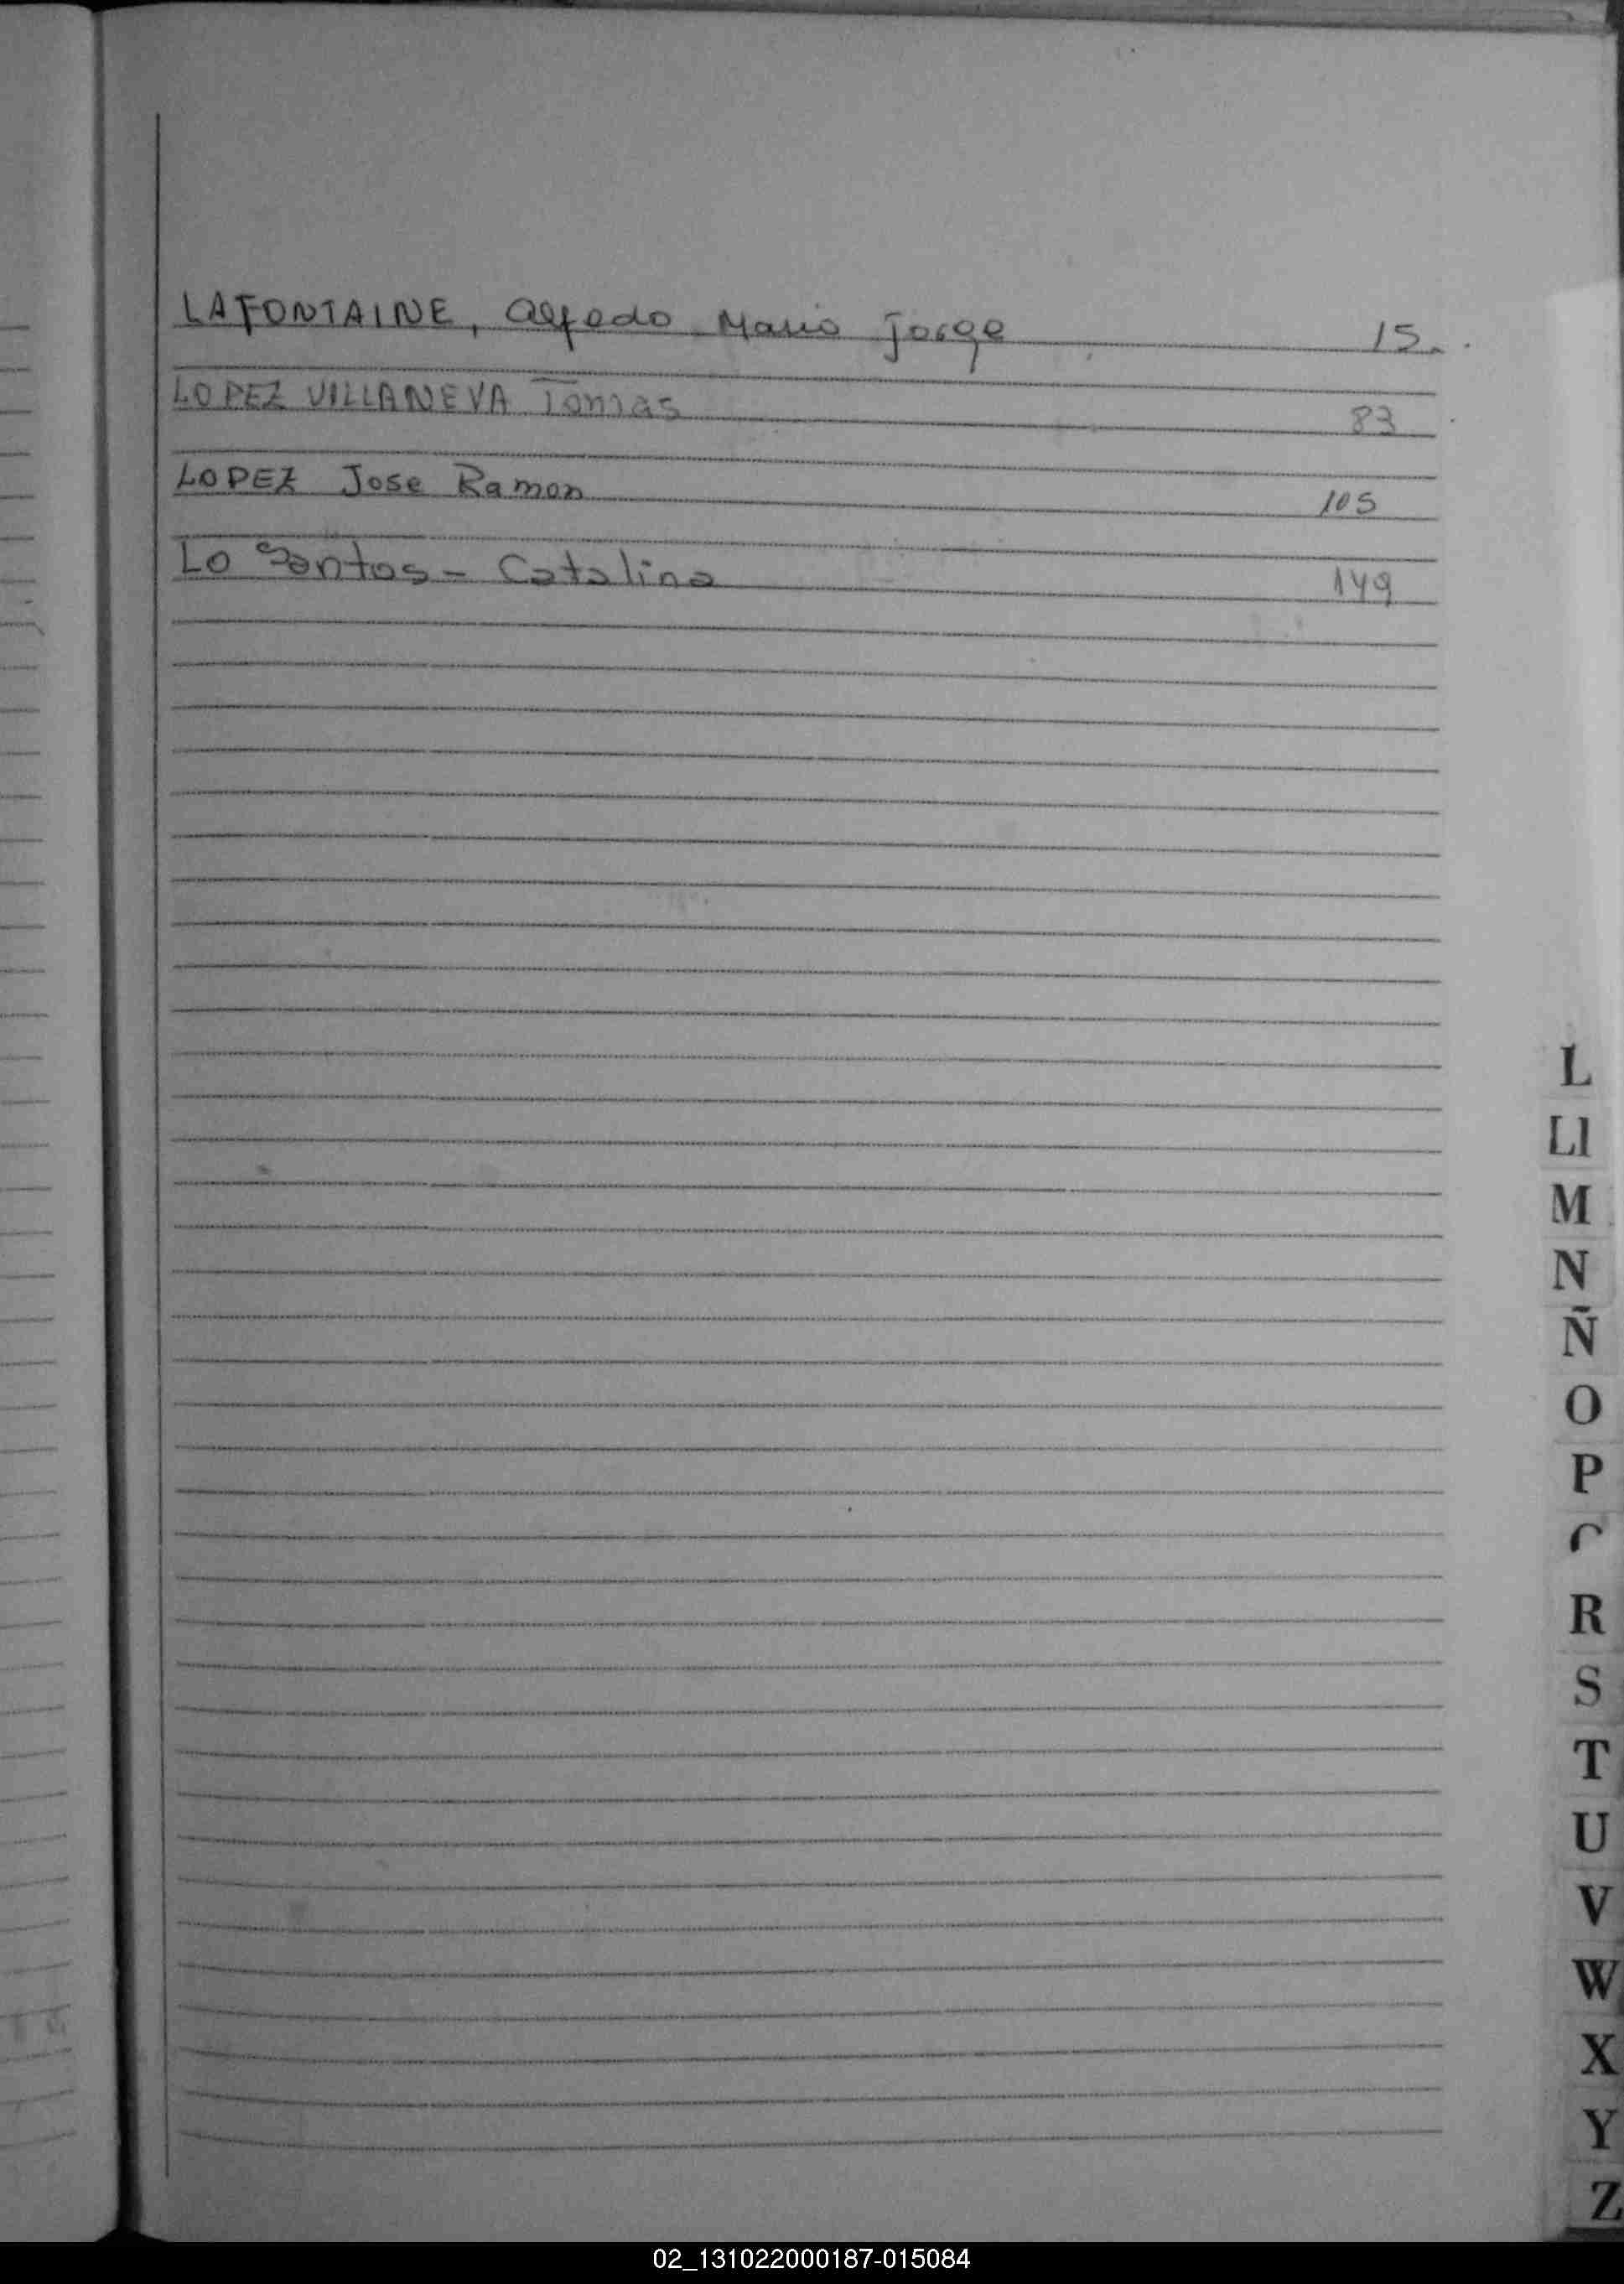 LAFONTAINE, Alfedo Mario Jorge 15.
LOPEZ VILLANEVA Tomas 83
LOPEZ Jose Ramon 105
Lo Santos - Catalina 149
L
Ll
M
N
Ñ
O
P
R
S
T
U
V
W
X
Y
Z
02_131022000187-015084